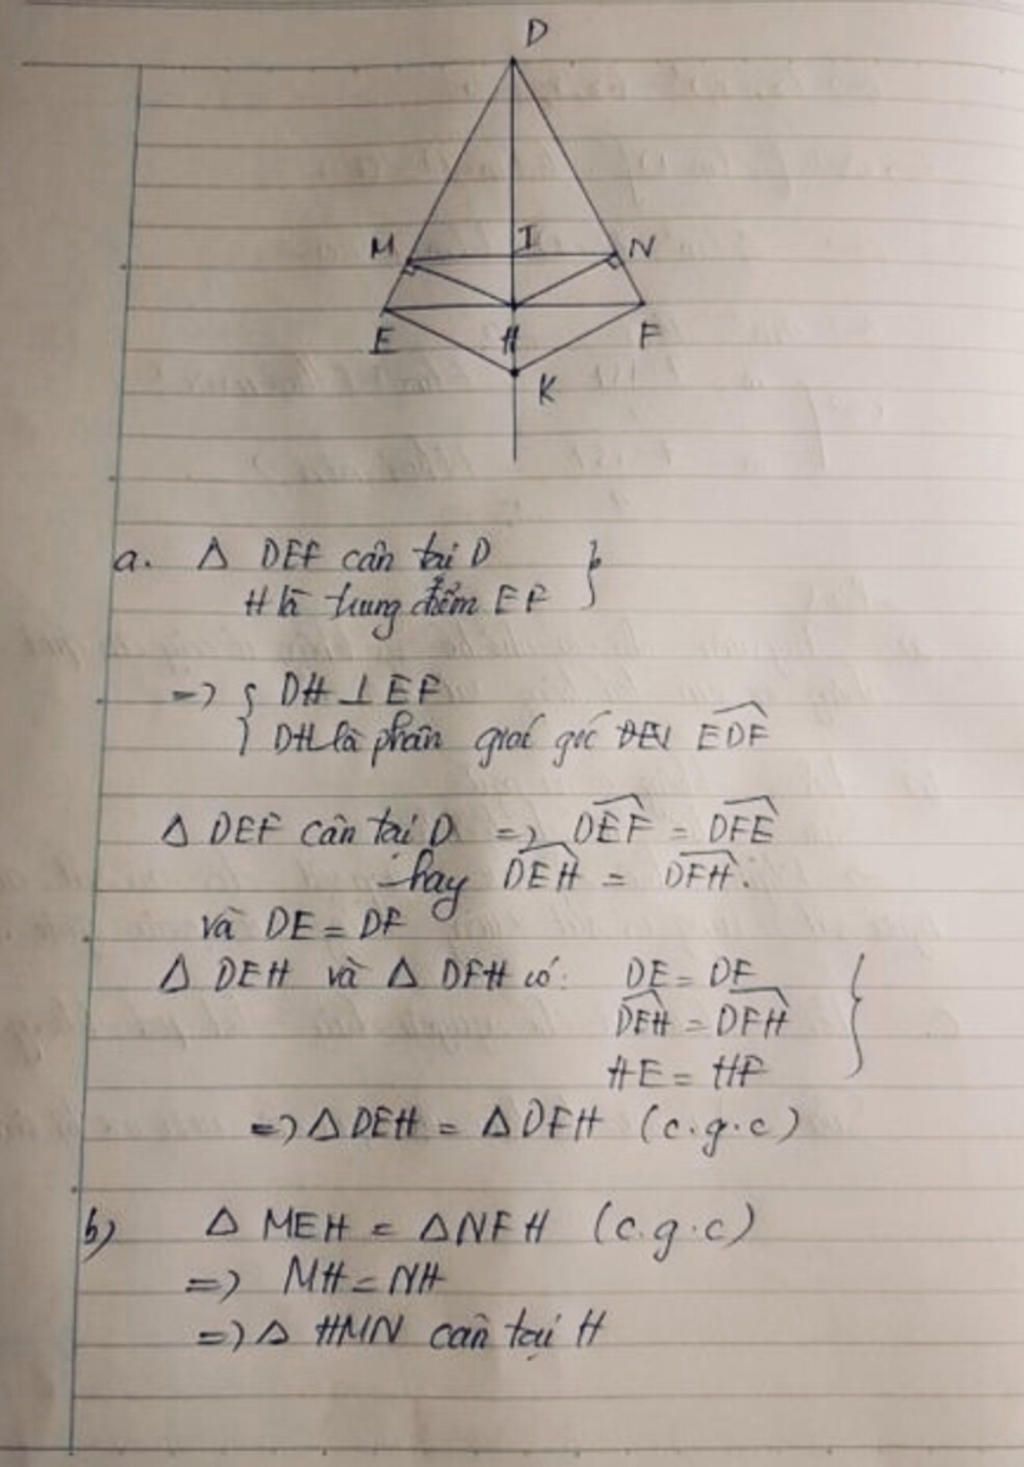 D
M I N
E H F
K
a. Δ DEF cân tại D
H là trung điểm EF }
=> { DH ⊥ EF
DH là phân giác góc EDF
Δ DEF cân tại D => DEF = DFE
hay DEH = DFH.
và DE = DF
Δ DEH và Δ DFH có: DE = DF
DEH = DFH }
HE = HF
=> Δ DEH = Δ DFH (c.g.c)
b) Δ MEH = Δ NFH (c.g.c)
=> MH = NH
=> Δ HMN cân tại H